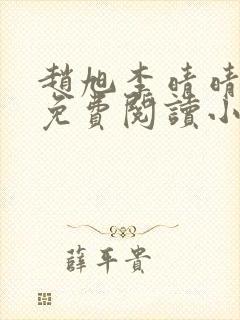 趙旭李晴晴
免費閱讀小
薛平貴